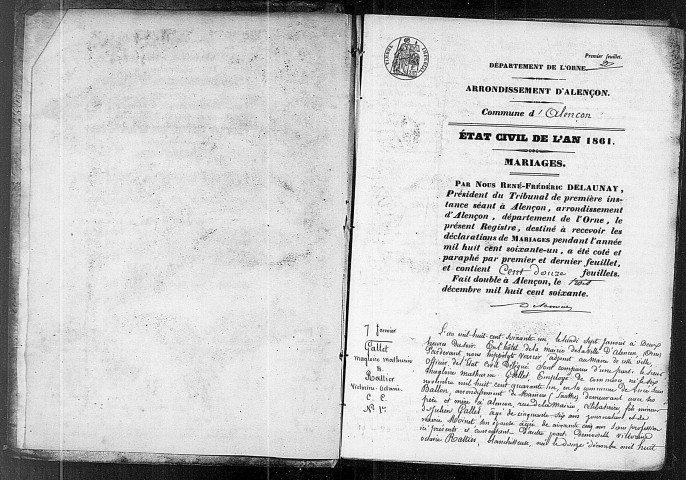 Premier feuillet.
DÉPARTEMENT DE L'ORNE.
ARRONDISSEMENT D'ALENÇON.
Commune d'Alençon
ÉTAT CIVIL DE L'AN 1861.
MARIAGES.
PAR NOUS RENÉ-FRÉDÉRIC DELAUNAY,
Président du Tribunal de première ins-
tance séant à Alençon, arrondissement
d'Alençon, département de l'Orne, le
présent Registre, destiné à recevoir les
déclarations de MARIAGES pendant l'année
mil huit cent soixante-un, a été coté et
paraphé par premier et dernier feuillet,
et contient Cent douze feuillets.
Fait double à Alençon, le trois
décembre mil huit cent soixante.
Delaunay
7 Janvier
Gallet
magloire mathurin
&
Rattier
Victorine octavie
C. C.
N° 1er
L'an mil huit cent soixante un, le lundi sept janvier à Deux
heures du soir. En l'hôtel de la mairie de la ville d'Alençon, (Orne)
Pardevant nous hippolyte adjoint au Maire de cette ville
Officier de l'Etat Civil Délégué. Sont comparus d'une part: le sieur
magloire mathurin Gallet, Employé de commerce, né le dix
mil huit cent quarante un, en la commune de
Ballon, arrondissement de Mamers (Sarthe) demeurant avec ses
père et mère à Alençon, rue de la Mairie, célibataire fils mineur
de Julien Gallet, âgé de cinquante six ans journalier et de
marie Moinet son épouse âgée de soixante cinq ans sans profession
ici présents et consentant D'autre part Demoiselle Victorine
octavie Rattier, blanchisseuse, née le douze décembre mil huit